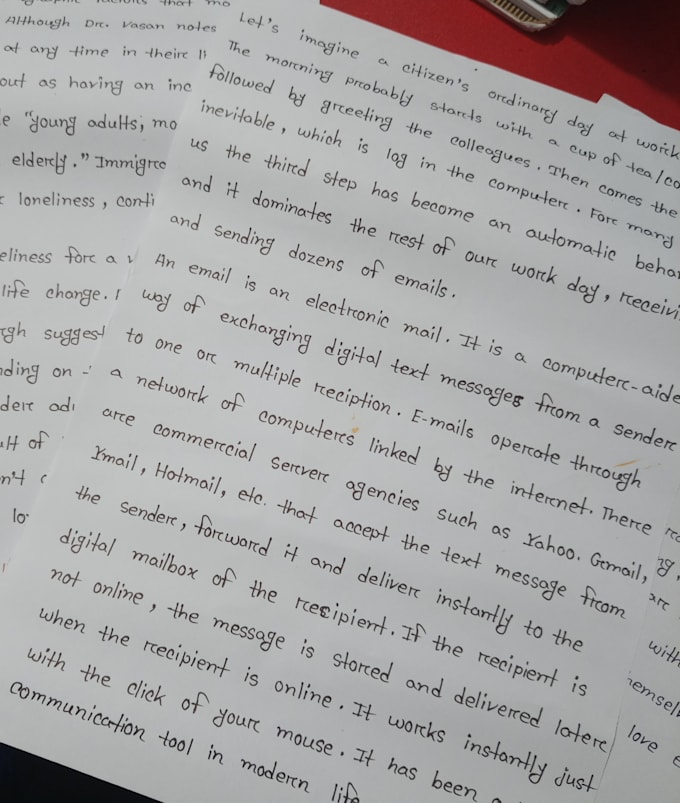 factors that mo
Although Dr. Vasan notes
at any time in their li
out as having an inc
e "young adults, mo
elderly." Immigra
loneliness, conti
eliness for a
life change. I
gh suggest
nding on
der adu
ult of
n't
lo
Let's imagine a citizen's ordinary day at work
The morning probably starts with a cup of tea/co
followed by greeting the colleagues. Then comes the
inevitable, which is log in the computer. For many
us the third step has become an automatic behav
and it dominates the rest of our work day, receivi
and sending dozens of emails.
An email is an electronic mail. It is a computer-aide
way of exchanging digital text messages from a sender
to one or multiple reciption. E-mails operate through
a network of computers linked by the internet. There
are commercial server agencies such as Yahoo. Gmail,
Ymail, Hotmail, etc. that accept the text message from
the sender, forward it and deliver instantly to the
digital mailbox of the recipient. If the recipient is
not online, the message is stored and delivered later
when the recipient is online. It works instantly just
with the click of your mouse. It has been a
communication tool in modern life
are
with
hemsel
love